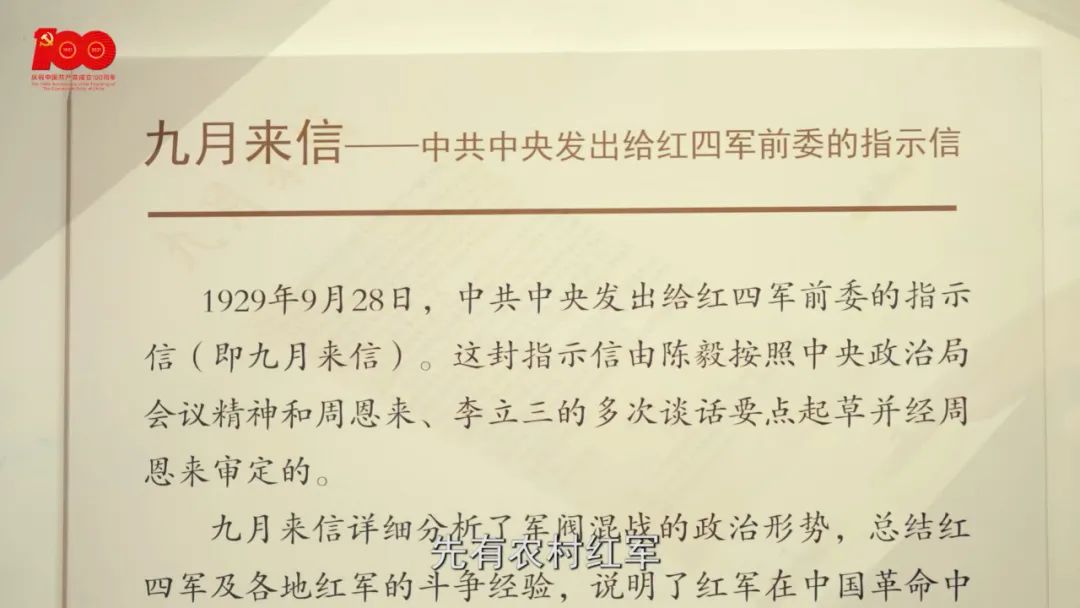 100
1921
2021
庆祝中国共产党成立100周年
The 100th Anniversary of the Founding of
The Communist Party of China
九月来信——中共中央发出给红四军前委的指示信
1929年9月28日，中共中央发出给红四军前委的指示
信（即九月来信）。这封指示信由陈毅按照中央政治局
会议精神和周恩来、李立三的多次谈话要点起草并经周
恩来审定的。
九月来信详细分析了军阀混战的政治形势，总结红
先有农村红军
四军及各地红军的斗争经验，说明了红军在中国革命中